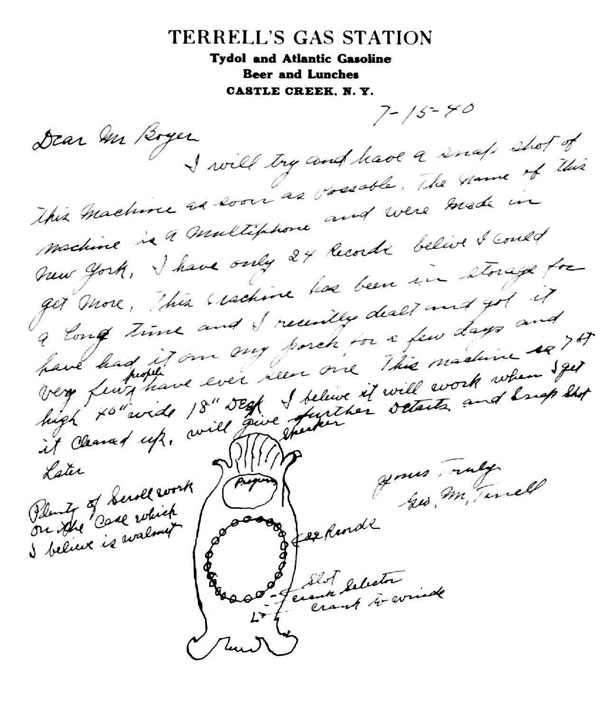 TERRELL'S GAS STATION
Tydol and Atlantic Gasoline
Beer and Lunches
CASTLE CREEK, N. Y.
7-15-40
Dear Mr Boyer
I will try and have a snap shot of
this machine as soon as possable. The name of this
machine is a Multiphone and were made in
New York. I have only 24 Records belive I could
get more. This machine has been in storage for
a long time and I recently dealt and got it
have had it on my porch for a few days and
very few people have ever seen one. This machine is 7 ft
high 40" wide 18" Deep I believe it will work when I get
it cleaned up. will give further Details and Snap Shot
Later
Speeker
Yours Truly
Geo. M. Terrell
Plenty of Scroll work
on the case which
I believe is walnut
Program
24 Records
Slot
crank Selector
crank to winde